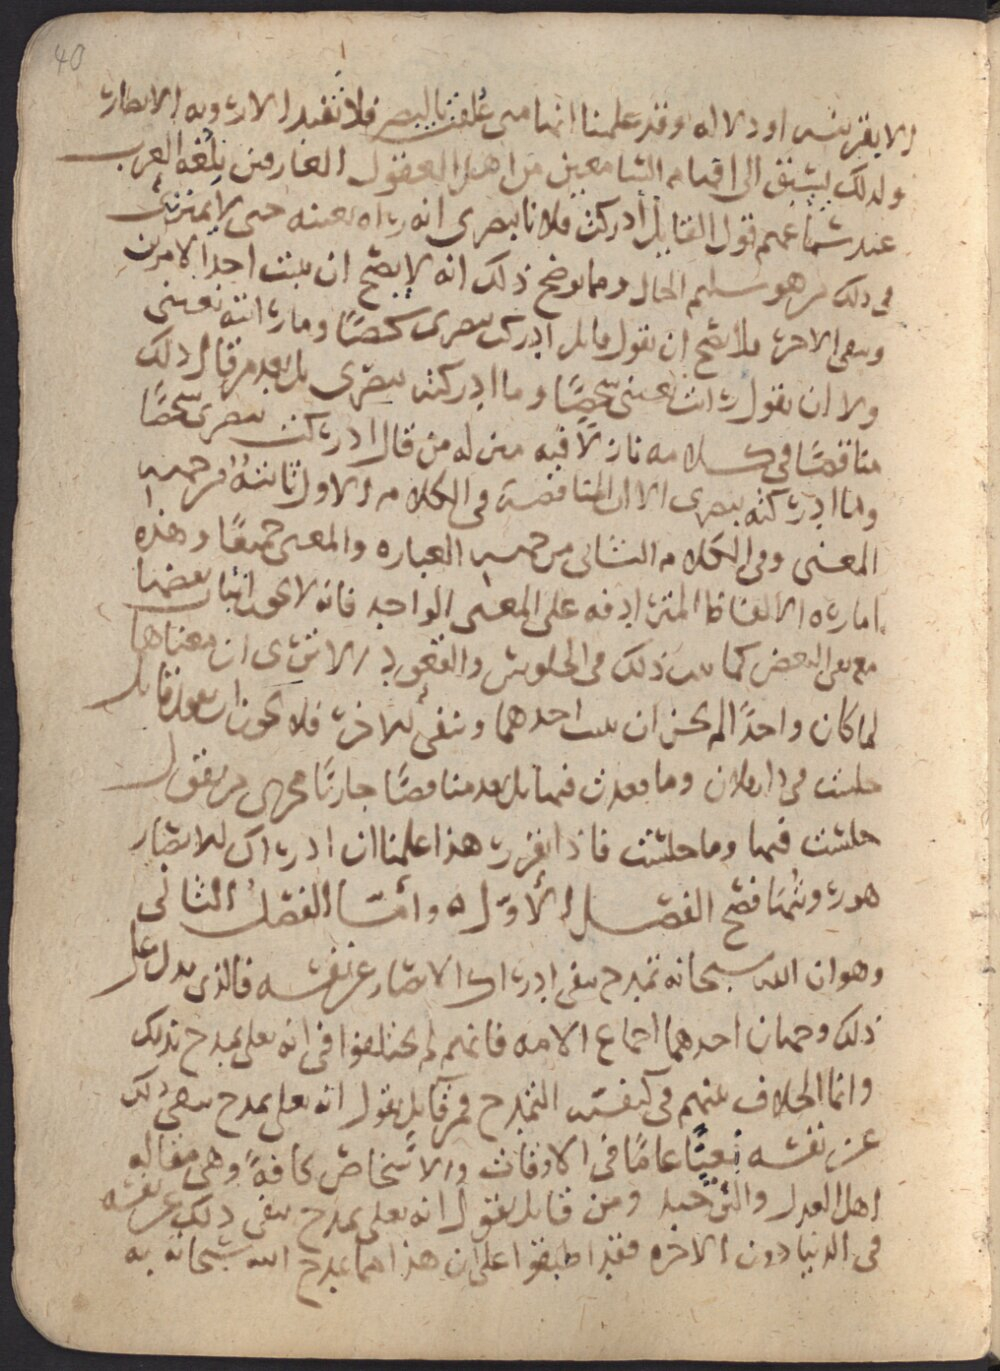 40
الا بقرينه او دلاله وقد علمنا انها متى علقت بالبصر فلا تفيد الا رويه الابصار
ولذلك يستبق الى افهام السامعين من اهل العقول العارفين بلغه العرب
عند سماعهم قول القايل ادركت فلانا ببصرى انه راه بعينه حتى لا يمترى
فى ذلك من هو سليم الحال ومما يوضح ذلك انه لا يصح ان يثبت احد الامرين
وينفى الاخر فلا يصح ان يقول قايل ادركت ببصرى شخصًا وما رايته بعينى
ولا ان يقول رايت بعينى شخصًا وما ادركته ببصرى بل يعد من قال ذلك
مناقضًا فى كلامه نازلًا فيه منزله من قال ادركت ببصرى شخصًا
وما ادركته ببصرى الا ان المناقضه فى الكلام الاول ثابته من جهه
المعنى وفى الكلام الثانى من جهه العباره والمعنى جميعًا وهذه
اماره الالفاظ المترادفه على المعنى الواحد فانه لا يجوز اثبات بعضها
مع نفى البعض كما يثبت ذلك فى الجلوس والقعود الا ترى ان معناهما
لما كان واحدًا لم يحسن ان يثبت احدهما وينفى الاخر فلا يجوز ان يقول قايل
جلست فى دار فلان وما قعدت فيها بل يعد مناقضًا جاريًا مجرى من يقول
جلست فيها وما جلست فاذا تقرر هذا علمنا ان ادراك الابصار
هو رويتها فصح الفصل الاول ه واما الفصل الثانى
وهو ان الله سبحانه تمدح بنفى ادراك الابصار عن نفسه فالذى يدل على
ذلك وجهان احدهما اجماع الامه فانهم لم يختلفوا فى انه تعلى يمدح بذلك
وانما الخلاف بينهم فى كيفيه التمدح فمن قايل يقول انه تعلى يمدح بنفى ذلك
عن نفسه نفيًا عامًا فى الاوقات والاشخاص كافهً وهى مقاله
اهل العدل والتوحيد ومن قايل يقول انه تعلى يمدح بنفى ذلك عن نفسه
فى الدنيا دون الاخره فقد اطبقوا على ان هذا مما يمدح الله سبحانه به